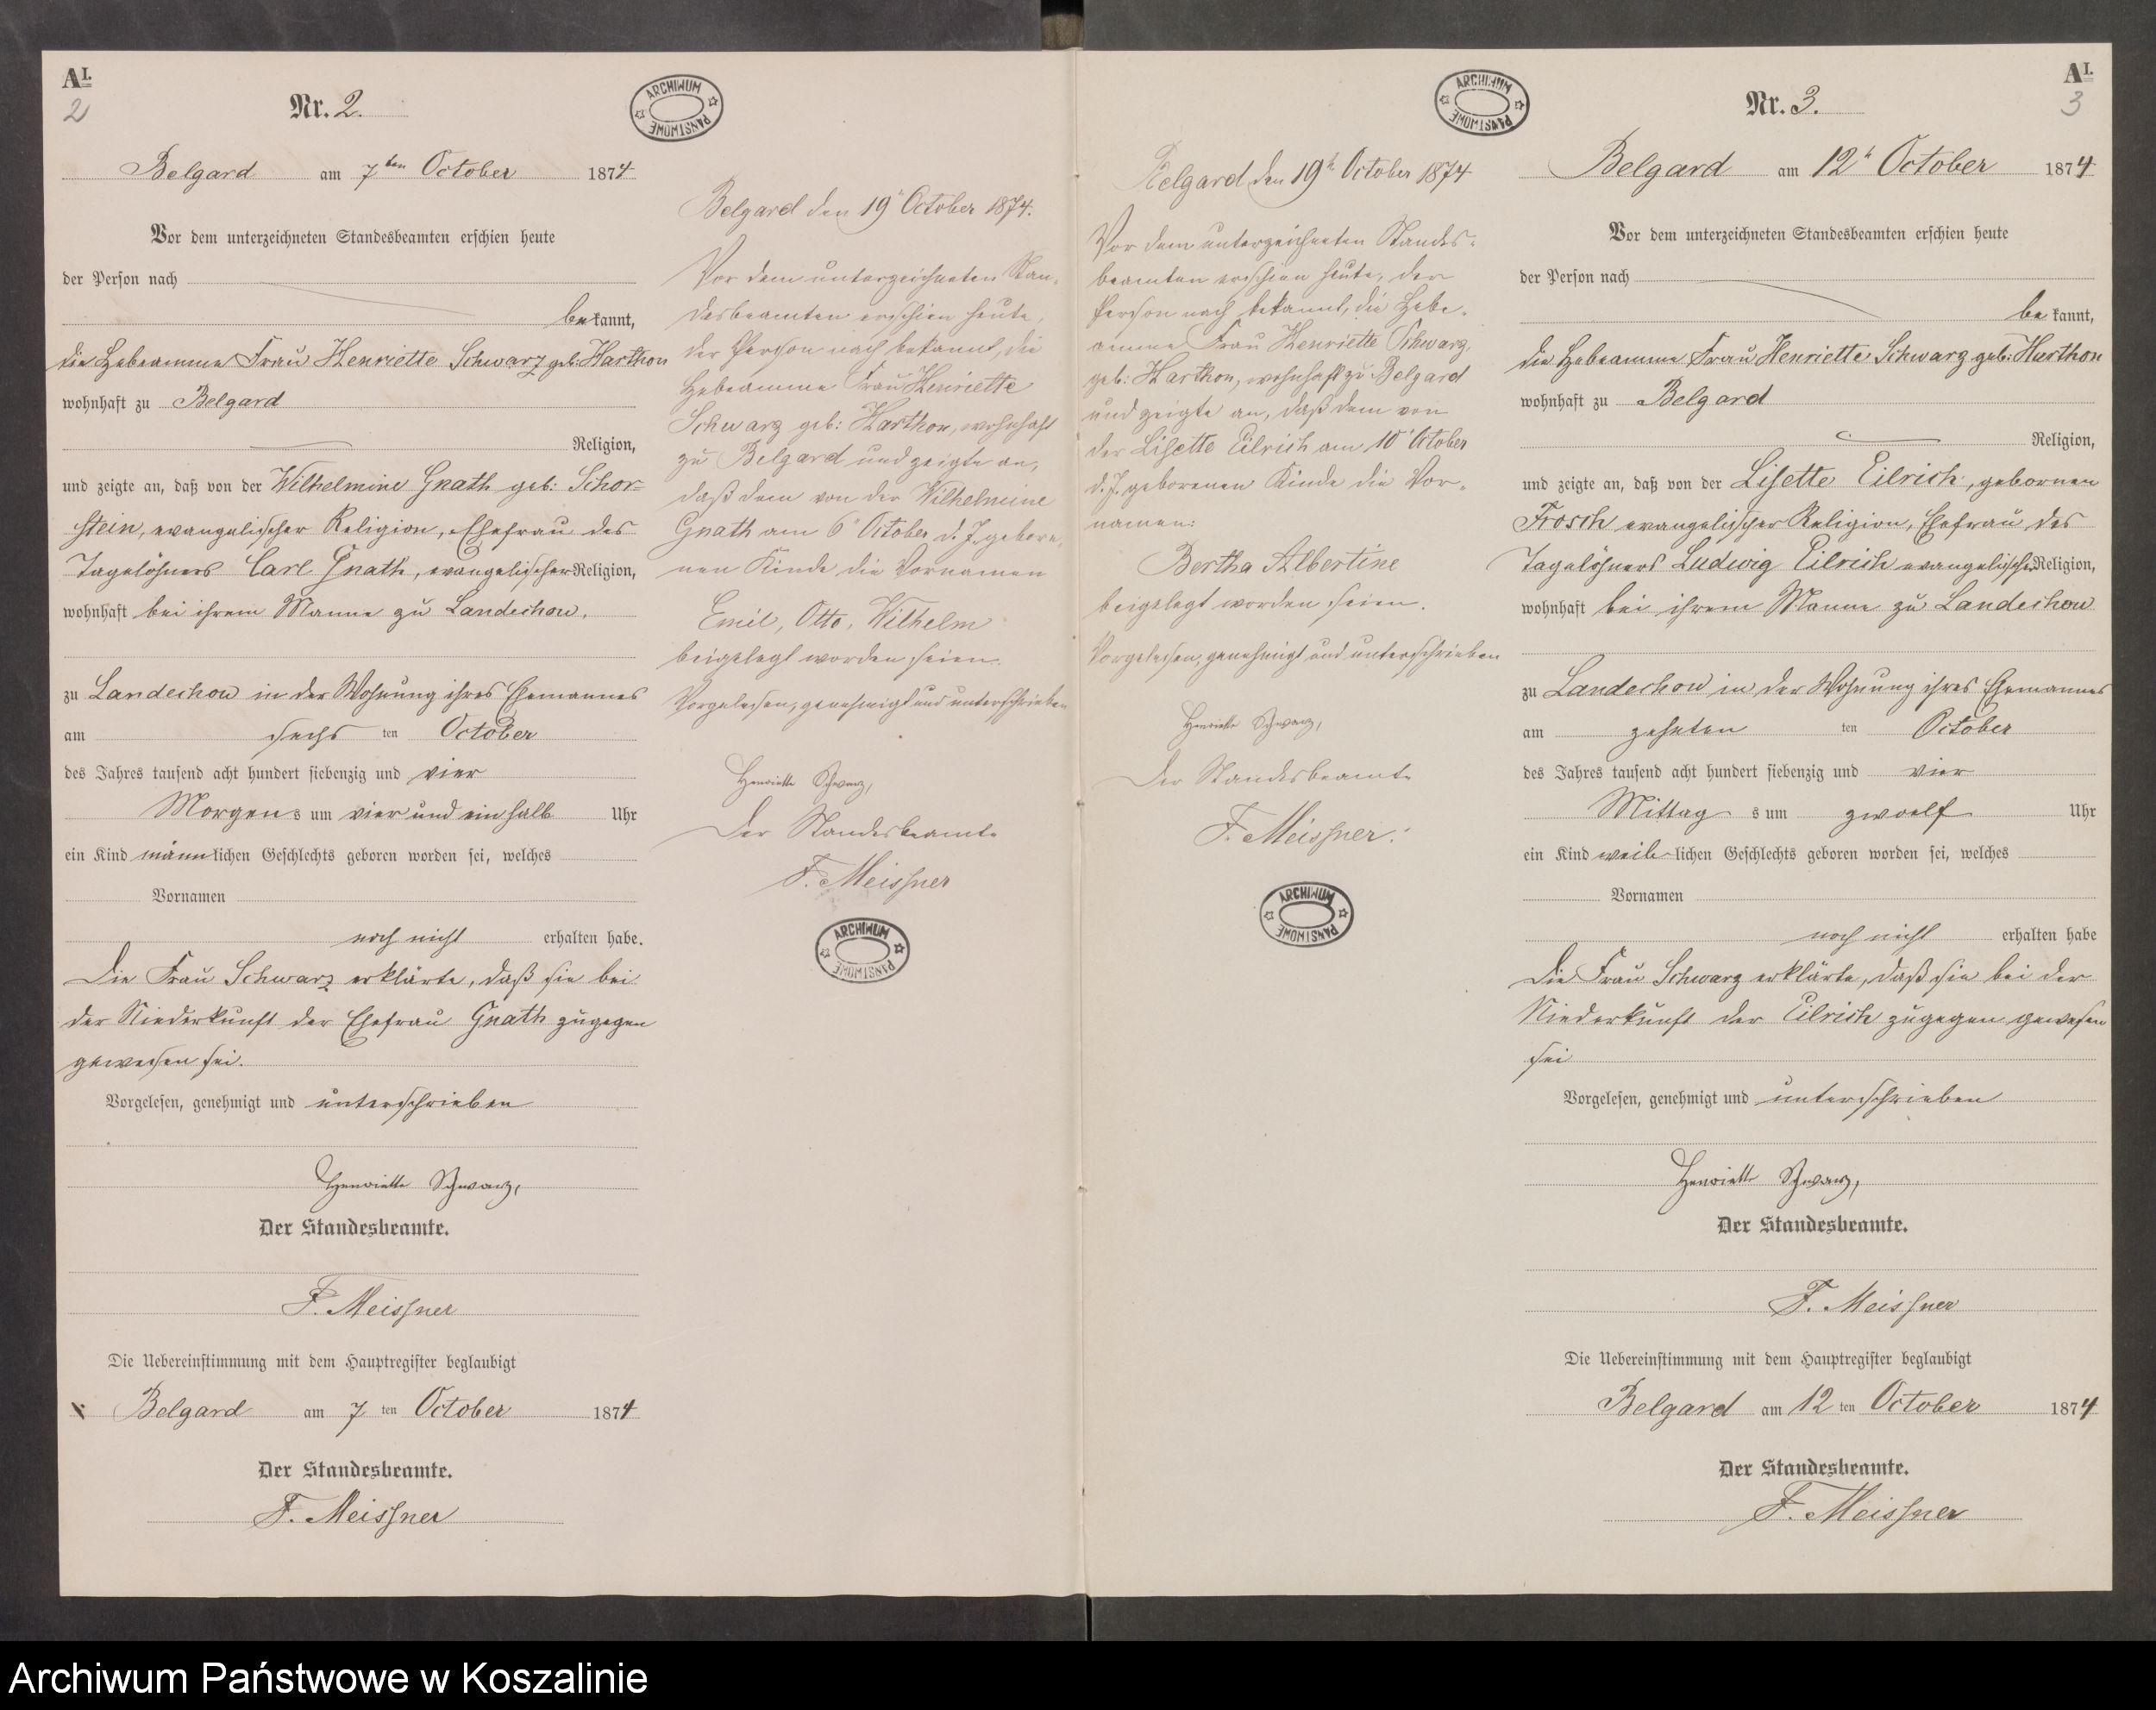 AI.
2
Nr. 2.
ARCHIWUM PAŃSTWOWE
Belgard am 7ten October 1874
Vor dem unterzeichneten Standesbeamten erschien heute
der Person nach
bekannt,
die Hebeamme Frau Henriette Schwarz geb: Harthon
wohnhaft zu Belgard
Religion,
und zeigte an, daß von der Wilhelmine Gnath geb: Schor-
stein, evangelischer Religion, Ehefrau des
Tagelöhners Carl Gnath, evangelischer Religion,
wohnhaft bei ihrem Manne zu Landechow,
zu Landechow in der Wohnung ihres Ehemannes
am sechs ten October
des Jahres tausend acht hundert siebenzig und vier
Morgens um vier und ein halb Uhr
ein Kind männlichen Geschlechts geboren worden sei, welches
Vornamen
noch nicht erhalten habe.
Die Frau Schwarz erklärte, daß sie bei
der Niederkunft der Ehefrau Gnath zugegen
gewesen sei.
Vorgelesen, genehmigt und unterschrieben
Henriette Schwarz,
Der Standesbeamte.
F. Meissner
Die Uebereinstimmung mit dem Hauptregister beglaubigt
Belgard am 7 ten October 1874
Der Standesbeamte.
F. Meissner
Belgard den 19t October 1874.
Vor dem unterzeichneten Stan-
desbeamten erschien heute,
der Person nach bekannt, die
Hebeamme Frau Henriette
Schwarz geb: Harthon, wohnhaft
zu Belgard und zeigte an,
daß dem von der Wilhelmine
Gnath am 6t October d. J. gebore-
nen Kinde die Vornamen
Emil, Otto, Wilhelm
beigelegt worden seien.
Vorgelesen, genehmigt und unterschrieben
Henriette Schwarz,
Der Standesbeamte
F. Meissner
ARCHIWUM PAŃSTWOWE
ARCHIWUM PAŃSTWOWE
Belgard den 19t October 1874
Vor dem unterzeichneten Standes-
beamten erschien heute, der
Person nach bekannt, die Hebe-
amme Frau Henriette Schwarz,
geb: Harthon, wohnhaft zu Belgard
und zeigte an, daß dem von
der Lisette Eilrich am 10t October
d. J. geborenen Kinde die Vor-
namen:
Bertha Albertine
beigelegt worden seien.
Vorgelesen, genehmigt und unterschrieben
Henriette Schwarz,
Der Standesbeamte
F. Meissner.
ARCHIWUM PAŃSTWOWE
AI.
3
Nr. 3.
Belgard am 12t October 1874
Vor dem unterzeichneten Standesbeamten erschien heute
der Person nach
bekannt,
die Hebeamme Frau Henriette Schwarz geb: Harthon
wohnhaft zu Belgard
Religion,
und zeigte an, daß von der Lisette Eilrich, gebornen
Frosch evangelischer Religion, Ehefrau des
Tagelöhners Ludwig Eilrich evangelischer Religion,
wohnhaft bei ihrem Manne zu Landechow
zu Landechow in der Wohnung ihres Ehemannes
am zehnten ten October
des Jahres tausend acht hundert siebenzig und vier
Mittags um zwoelf Uhr
ein Kind weiblichen Geschlechts geboren worden sei, welches
Vornamen
noch nicht erhalten habe
Die Frau Schwarz erklärte, daß sie bei der
Niederkunft der Eilrich zugegen gewesen
sei
Vorgelesen, genehmigt und unterschrieben
Henriette Schwarz,
Der Standesbeamte.
F. Meissner
Die Uebereinstimmung mit dem Hauptregister beglaubigt
Belgard am 12 ten October 1874
Der Standesbeamte.
F. Meissner
Archiwum Państwowe w Koszalinie